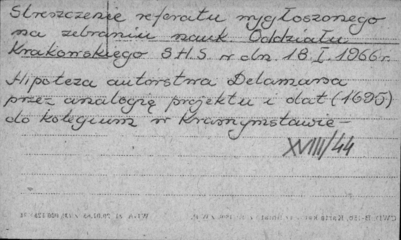 Streszczenie referatu wygłoszonego
na zebraniu nauk. Oddziału
Krakowskiego S.H.S. w dn. 18.I.1966 r.
Hipoteza autorstwa Delamarsa
przez analogię projektu i dat (1695)
do kolegium w Krasnymstawie -
XVIII/44